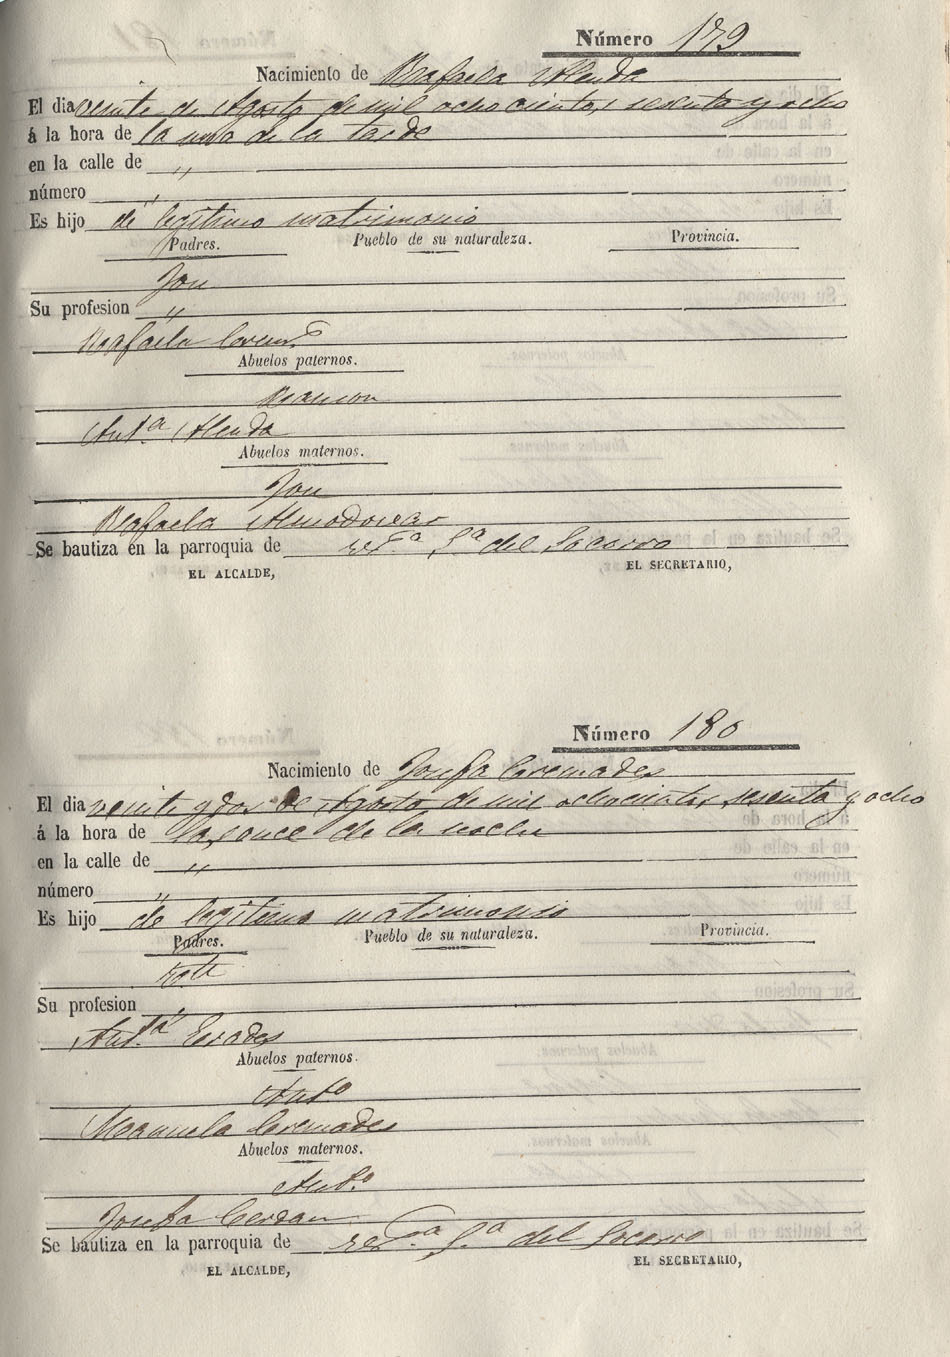 Número 179
Nacimiento de Rafaela Alenda
El dia veinte de Agosto de mil ochocientos sesenta y ocho
á la hora de la una de la tarde
en la calle de "
número "
Es hijo de legitimo matrimonio
Padres. Pueblo de su naturaleza. Provincia.
José
Su profesion "
Rafaela
Abuelos paternos.
Ramon
Ant.ª Alenda
Abuelos maternos.
José
Rafaela Almodovar
Se bautiza en la parroquia de S.ª del Socorro
EL ALCALDE, EL SECRETARIO,
Número 180
Nacimiento de Josefa Cremades
El dia veinte y dos de Agosto de mil ochocientos sesenta y ocho
á la hora de las once de la noche
en la calle de "
número "
Es hijo de legitimo matrimonio
Padres. Pueblo de su naturaleza. Provincia.
Su profesion "
Ant.ª
Abuelos paternos.
Antº
Manuela Cremades
Abuelos maternos.
Antº
Josefa Cerdan
Se bautiza en la parroquia de S.ª del Socorro
EL ALCALDE, EL SECRETARIO,